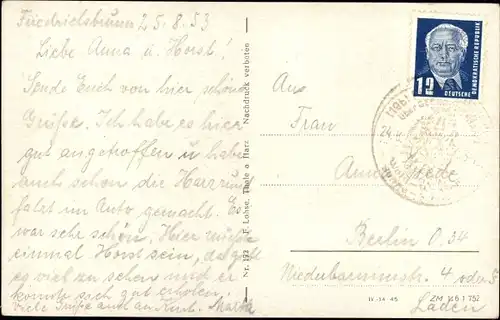 Friedrichsbrunn 25.8.53
Liebe Anna u. Horst!
Sende Euch von hier schöne
Grüße. Ich habe es hier
gut angetroffen u habe
auch schon der Harzrund
fahrt im Auto gemacht. Es
war sehr schön. Hier müßte
einmal Horst sein, da gibt
es viel zu sehen und er
könnte sich gut erholen.
viele Grüße auch an Kurt. Martha
Nr. 173 F. Lohse, Thale a Harz Nachdruck verboten
12
DEUTSCHE
DEMOKRATISCHE REPUBLIK
An
Frau
Anna
Berlin O. 34
Niederbarnimstr. 4 oder 5
Laden
IV-14-45
ZM 1 752